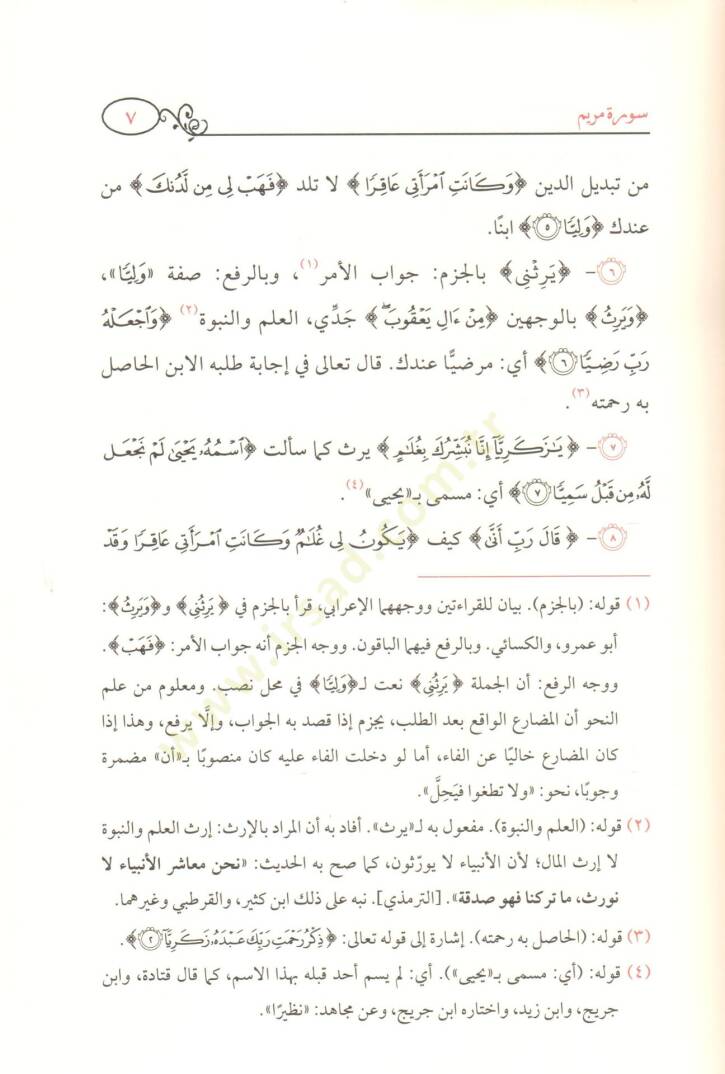 سورة مريم
٧
من تبديل الدين ﴿وَكَانَتِ ٱمْرَأَتِى عَاقِرًا﴾ لا تلد ﴿فَهَبْ لِى مِن لَّدُنكَ﴾ من
عندك ﴿وَلِيًّا ٥﴾ ابنًا.
٦- ﴿يَرِثْنِى﴾ بالجزم: جواب الأمر(١)، وبالرفع: صفة «وَلِيًّا»،
﴿وَيَرِثُ﴾ بالوجهين ﴿مِنْ ءَالِ يَعْقُوبَ ۖ﴾ جَدِّي، العلم والنبوة(٢) ﴿وَٱجْعَلْهُ
رَبِّ رَضِيًّا ٦﴾ أي: مرضيًّا عندك. قال تعالى في إجابة طلبه الابن الحاصل
به رحمته(٣).
٧- ﴿يَـٰزَكَرِيَّآ إِنَّا نُبَشِّرُكَ بِغُلَـٰمٍ﴾ يرث كما سألت ﴿ٱسْمُهُۥ يَحْيَىٰ لَمْ نَجْعَل
لَّهُۥ مِن قَبْلُ سَمِيًّا ٧﴾ أي: مسمى بـ«يحيى»(٤).
٨- ﴿قَالَ رَبِّ أَنَّىٰ﴾ كيف ﴿يَكُونُ لِى غُلَـٰمٌ وَكَانَتِ ٱمْرَأَتِى عَاقِرًا وَقَدْ
(١) قوله: (بالجزم). بيان للقراءتين ووجههما الإعرابي، قرأ بالجزم في ﴿يَرِثْنِى﴾ و﴿وَيَرِثُ﴾:
أبو عمرو، والكسائي. وبالرفع فيهما الباقون. ووجه الجزم أنه جواب الأمر: ﴿فَهَبْ﴾.
ووجه الرفع: أن الجملة ﴿يَرِثُنِى﴾ نعت لـ﴿وَلِيًّا﴾ في محل نصب. ومعلوم من علم
النحو أن المضارع الواقع بعد الطلب، يجزم إذا قصد به الجواب، وإلَّا يرفع، وهذا إذا
كان المضارع خاليًا عن الفاء، أما لو دخلت الفاء عليه كان منصوبًا بـ«أن» مضمرة
وجوبًا، نحو: «ولا تطغوا فيَحِلَّ».
(٢) قوله: (العلم والنبوة). مفعول به لـ«يرث». أفاد به أن المراد بالإرث: إرث العلم والنبوة
لا إرث المال؛ لأن الأنبياء لا يورّثون، كما صح به الحديث: «نحن معاشر الأنبياء لا
نورث، ما تركنا فهو صدقة». [الترمذي]. نبه على ذلك ابن كثير، والقرطبي وغيرهما.
(٣) قوله: (الحاصل به رحمته). إشارة إلى قوله تعالى: ﴿ذِكْرُ رَحْمَتِ رَبِّكَ عَبْدَهُۥ زَكَرِيَّآ ٢﴾.
(٤) قوله: (أي: مسمى بـ«يحيى»). أي: لم يسم أحد قبله بهذا الاسم، كما قال قتادة، وابن
جريج، وابن زيد، واختاره ابن جريج، وعن مجاهد: «نظيرًا».
www.irsad.com.tr